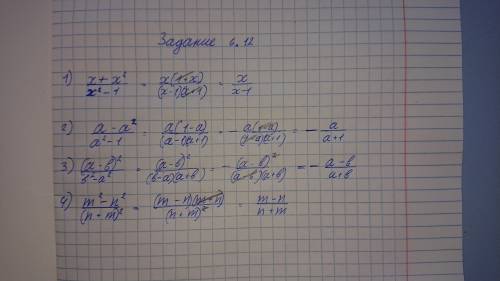 Задание 6.12
1) (x + x²)/(x² - 1) = x(1+x)/((x-1)(x+1)) = x/(x-1)
2) (a - a²)/(a² - 1) = a(1-a)/((a-1)(a+1)) = - a(1-a)/((1-a)(a+1)) = - a/(a+1)
3) (a-b)²/(b² - a²) = (a-b)²/((b-a)(a+b)) = - (a-b)²/((a-b)(a+b)) = - (a-b)/(a+b)
4) (m² - n²)/(n+m)² = (m-n)(m+n)/(n+m)² = (m-n)/(n+m)